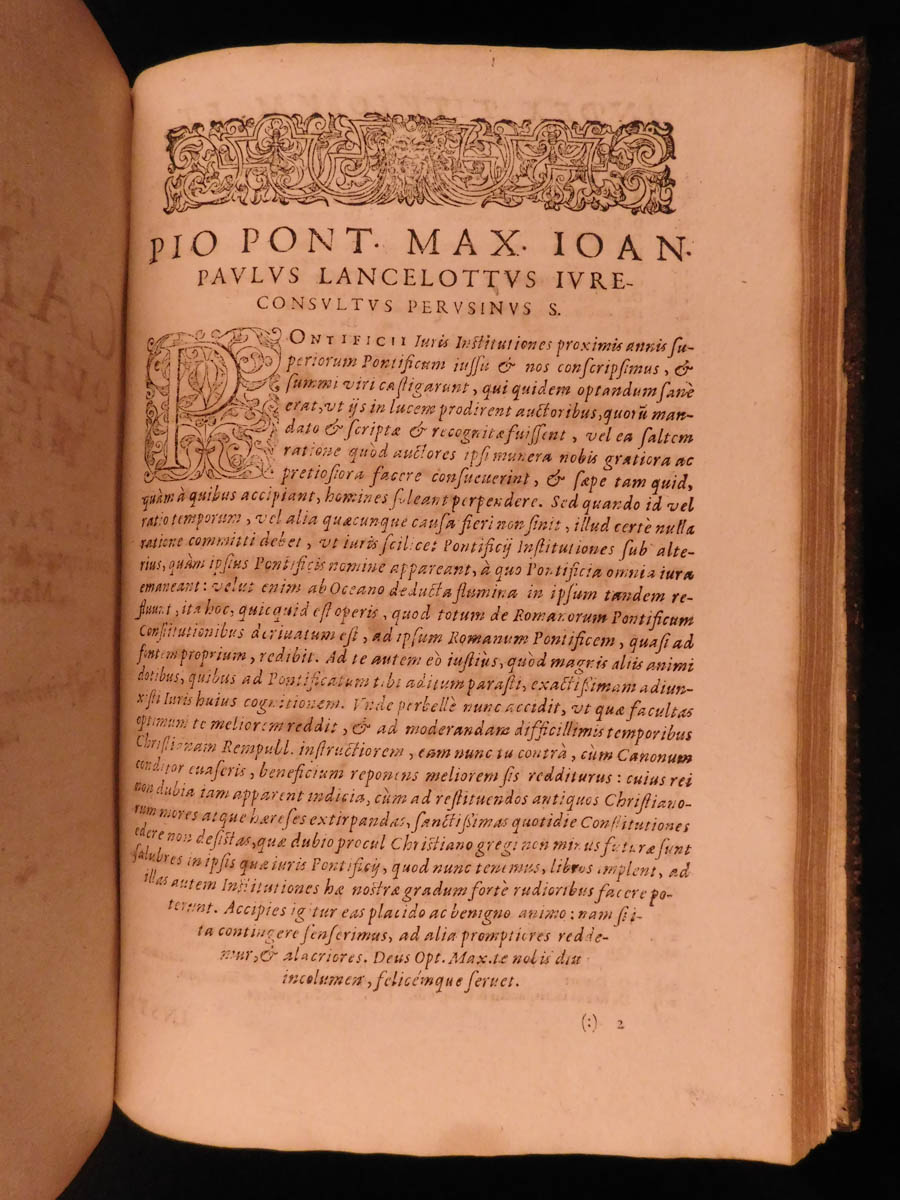 PIO PONT. MAX. IOAN.
PAVLVS LANCELOTTVS IVRE-
CONSVLTVS PERVSINVS S.
PONTIFICII Iuris Institutiones proximis annis su-
periorum Pontificum iussu & nos conscripsimus, &
summi viri castigarunt, qui quidem optandum sanè
erat, vt ijs in lucem prodirent auctoribus, quorū man-
dato & scriptæ & recognitæ fuissent, vel ea saltem
ratione quòd auctores ipsi munera nobis gratiora ac
pretiosiora facere consueuerint, & sæpe tam quid,
quàm à quibus accipiant, homines soleant perpendere. Sed quando id vel
ratio temporum, vel alia quæcunque causa fieri non sinit, illud certè nulla
ratione committi debet, vt iuris scilicet Pontificij Institutiones sub alte-
rius, quàm ipsius Pontificis nomine appareant, à quo Pontificia omnia iura
emaneant: velut enim ab Oceano deducta flumina in ipsum tandem re-
fluunt, ita hoc, quicquid est operis, quod totum de Romanorum Pontificum
Constitutionibus deriuatum est, ad ipsum Romanum Pontificem, quasi ad
fontem proprium, redibit. Ad te autem eò iustiùs, quòd magnis aliis animi
dotibus, quibus ad Pontificatum tibi aditum parasti, exactißimam adiun-
xisti Iuris huius cognitionem. Vnde perbellè nunc accidit, vt quæ facultas
optimum te meliorem reddit, & ad moderandam difficillimis temporibus
Christianam Rempubl. instructiorem, eam nunc tu contrà, cùm Canonum
conditor euaseris, beneficium reponens meliorem sis redditurus: cuius rei
non dubia iam apparent indicia, cùm ad restituendos antiquos Christiano-
rum mores atque hæreses extirpandas, sanctißimas quotidie Constitutiones
edere non desistas, quæ dubio procul Christiano gregi non minus futuræ sunt
salubres in ipsis quæ iuris Pontificij, quod nunc tenemus, libros implent, ad
illas autem Institutiones hæ nostræ gradum fortè rudioribus facere po-
terunt. Accipies igitur eas placido ac benigno animo: nam si i-
ta contingere senserimus, ad alia promptiores redde-
mur, & alacriores. Deus Opt. Max. te nobis diu
incolumen, felicémque seruet.
(:) 2